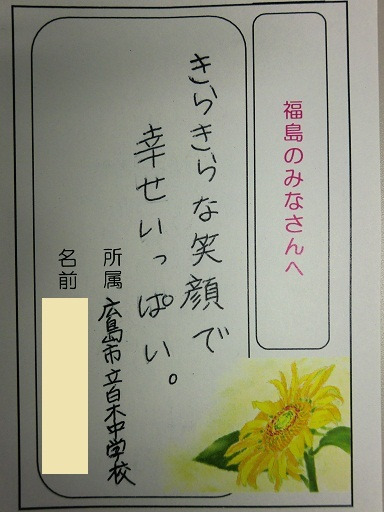 福島のみなさんへ
きらきらな笑顔で
幸せいっぱい。
所属 広島市立白木中学校
名前